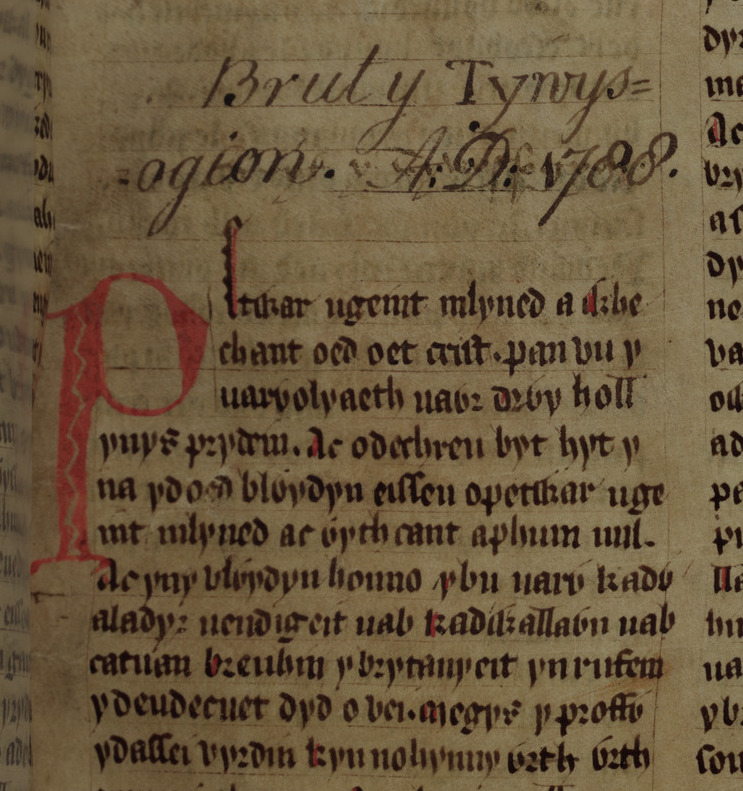 Brut y Tywys=
=ogion. A.D: 1788.
Petwar ugeint mlyned a chwe
chant oed oet crist. pan vu y
uarvolyaeth uavr drvy holl
ynys prydein. Ac odechreu byt hyt y
na yd oed blvydyn eisseu o petwar uge
int mlyned ac vyth cant a phum mil.
Ac yn y blvydyn honno y bu uarv kadv
aladyr uendigeit uab kadwallavn uab
catuan brenhin y brytanyeit yn rufein
y deudecuet dyd o vei. megys y proffv
ydassei vyrdin kyn no hynny vrth vrth